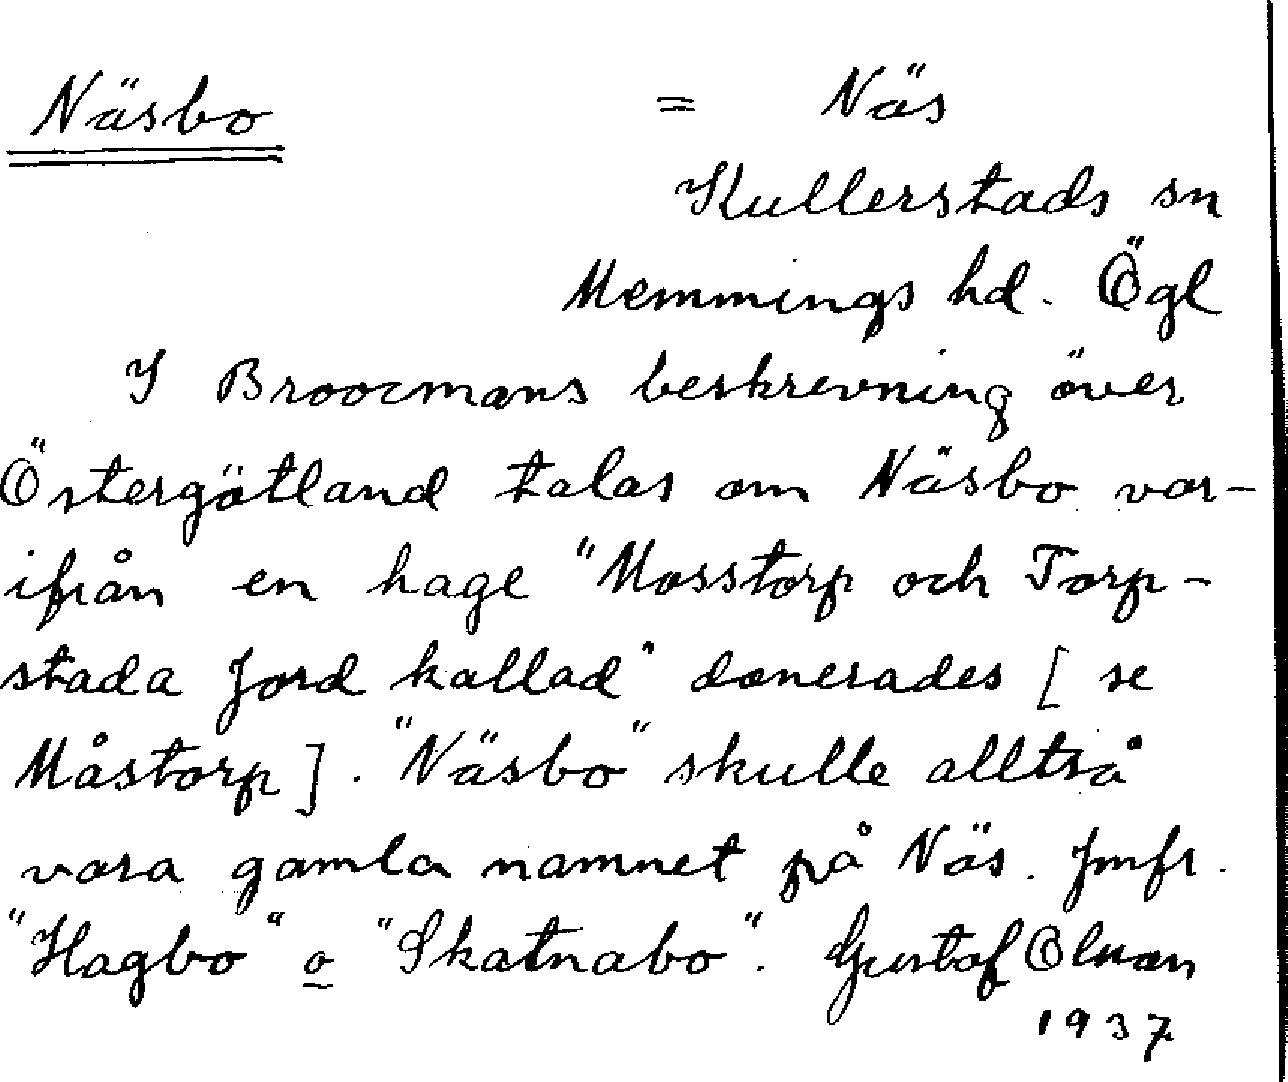 Näsbo = Näs
Kullerstads sn
Memmings hd. Ögl
I Broocmans beskrevning över
Östergötland talas om Näsbo var-
ifrån en hage "Mosstorp och Torp-
stada Jord kallad" donerades [se
Måstorp]. "Näsbo" skulle alltså
vara gamla namnet på Näs. Jmfr.
"Hagbo" o "Skatnabo". Gustaf Olsson
1937